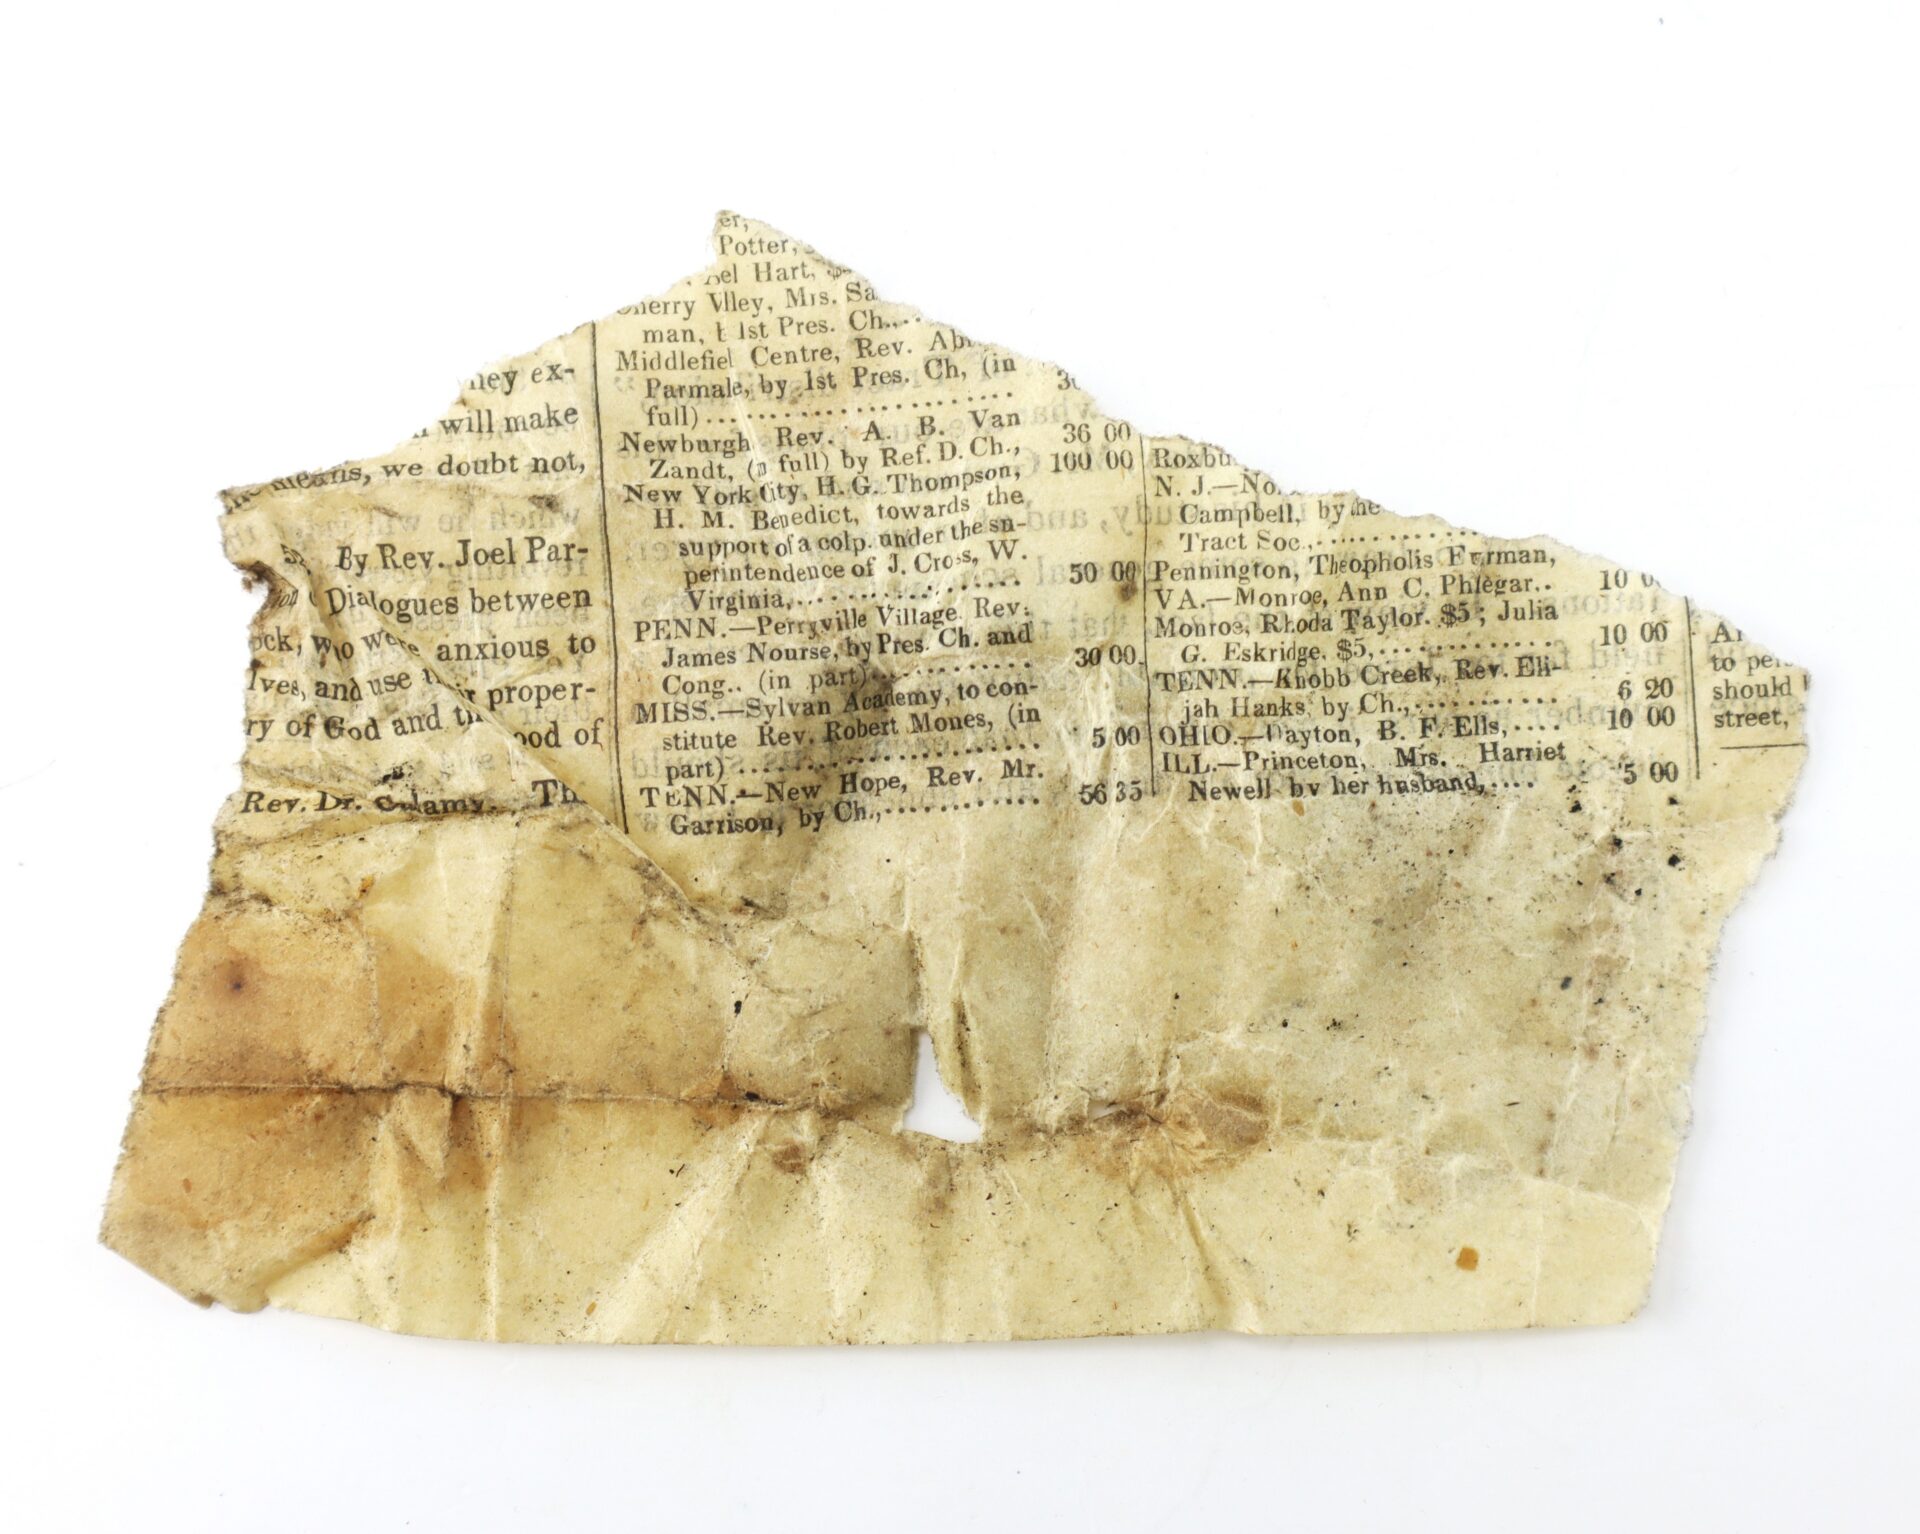 hey ex-
will make
means, we doubt not,
By Rev. Joel Par-
Dialogues between
ock, who were anxious to
lves, and use their proper-
ry of God and the good of
Rev. Dr. Calamy. Th
er,
Potter,
ael Hart,
Cherry Vlley, Mrs. Sa
man, 1st Pres. Ch.,..
Middlefiel Centre, Rev.
Parmale, by 1st Pres. Ch, (in
full)........................ 36 00
Newburgh Rev. A. B. Van
Zandt, (n full) by Ref. D. Ch., 100 00
New York City, H. G. Thompson,
H. M. Benedict, towards the
support of a colp. under the su-
perintendence of J. Cross, W.
Virginia,.................... 50 00
PENN.—Perryville Village Rev.
James Nourse, by Pres. Ch. and
Cong.. (in part)............. 30 00
MISS.—Sylvan Academy, to con-
stitute Rev. Robert Mones, (in
part)........................ 5 00
TENN.—New Hope, Rev. Mr.
Garrison, by Ch.,............ 56 35
Roxbu
N. J.—No
Campbell, by he
Tract Soc.,..............
Pennington, Theopholis Furman, 10
VA.—Monroe, Ann C. Phlegar.. 10 00
Monroe, Rhoda Taylor. $5; Julia
G. Eskridge, $5,..............
TENN.—Knobb Creek, Rev. Eli-
jah Hanks, by Ch.,............ 6 20
OHIO.—Dayton, B. F. Ells,.... 10 00
ILL.—Princeton, Mrs. Harriet
Newell by her husband,.... 5 00
to per
should
street,